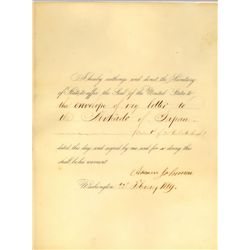 I hereby authorize and direct the Secretary
of State to affix the Seal of the United States to
the envelope of my letter to
the Mikado of Japan
dated this day and signed by me and for so doing this
shall be his warrant
Andrew Johnson
Washington